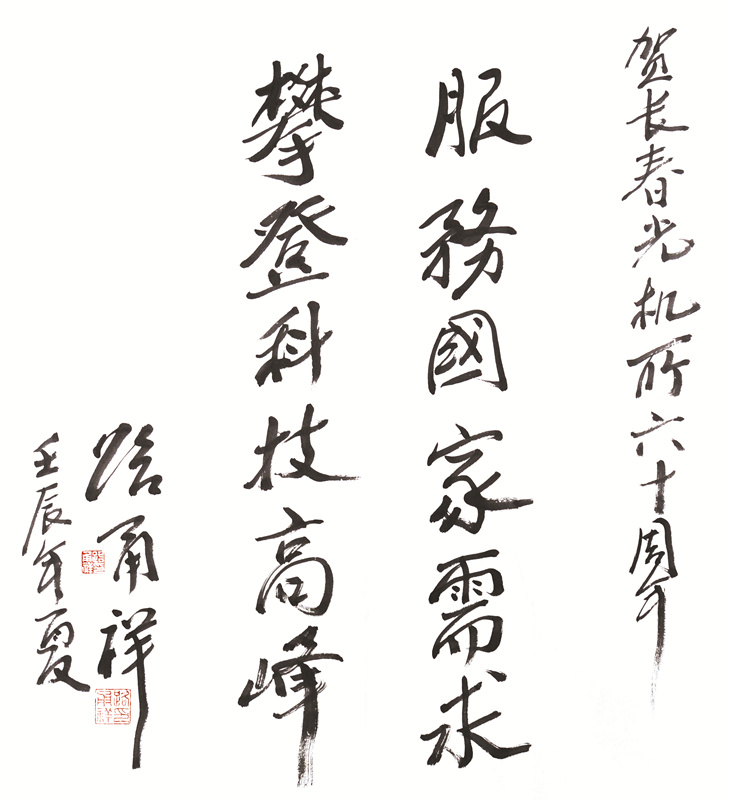 贺长春光机所六十周年
服務國家需求
攀登科技高峰
路甬祥
壬辰年夏